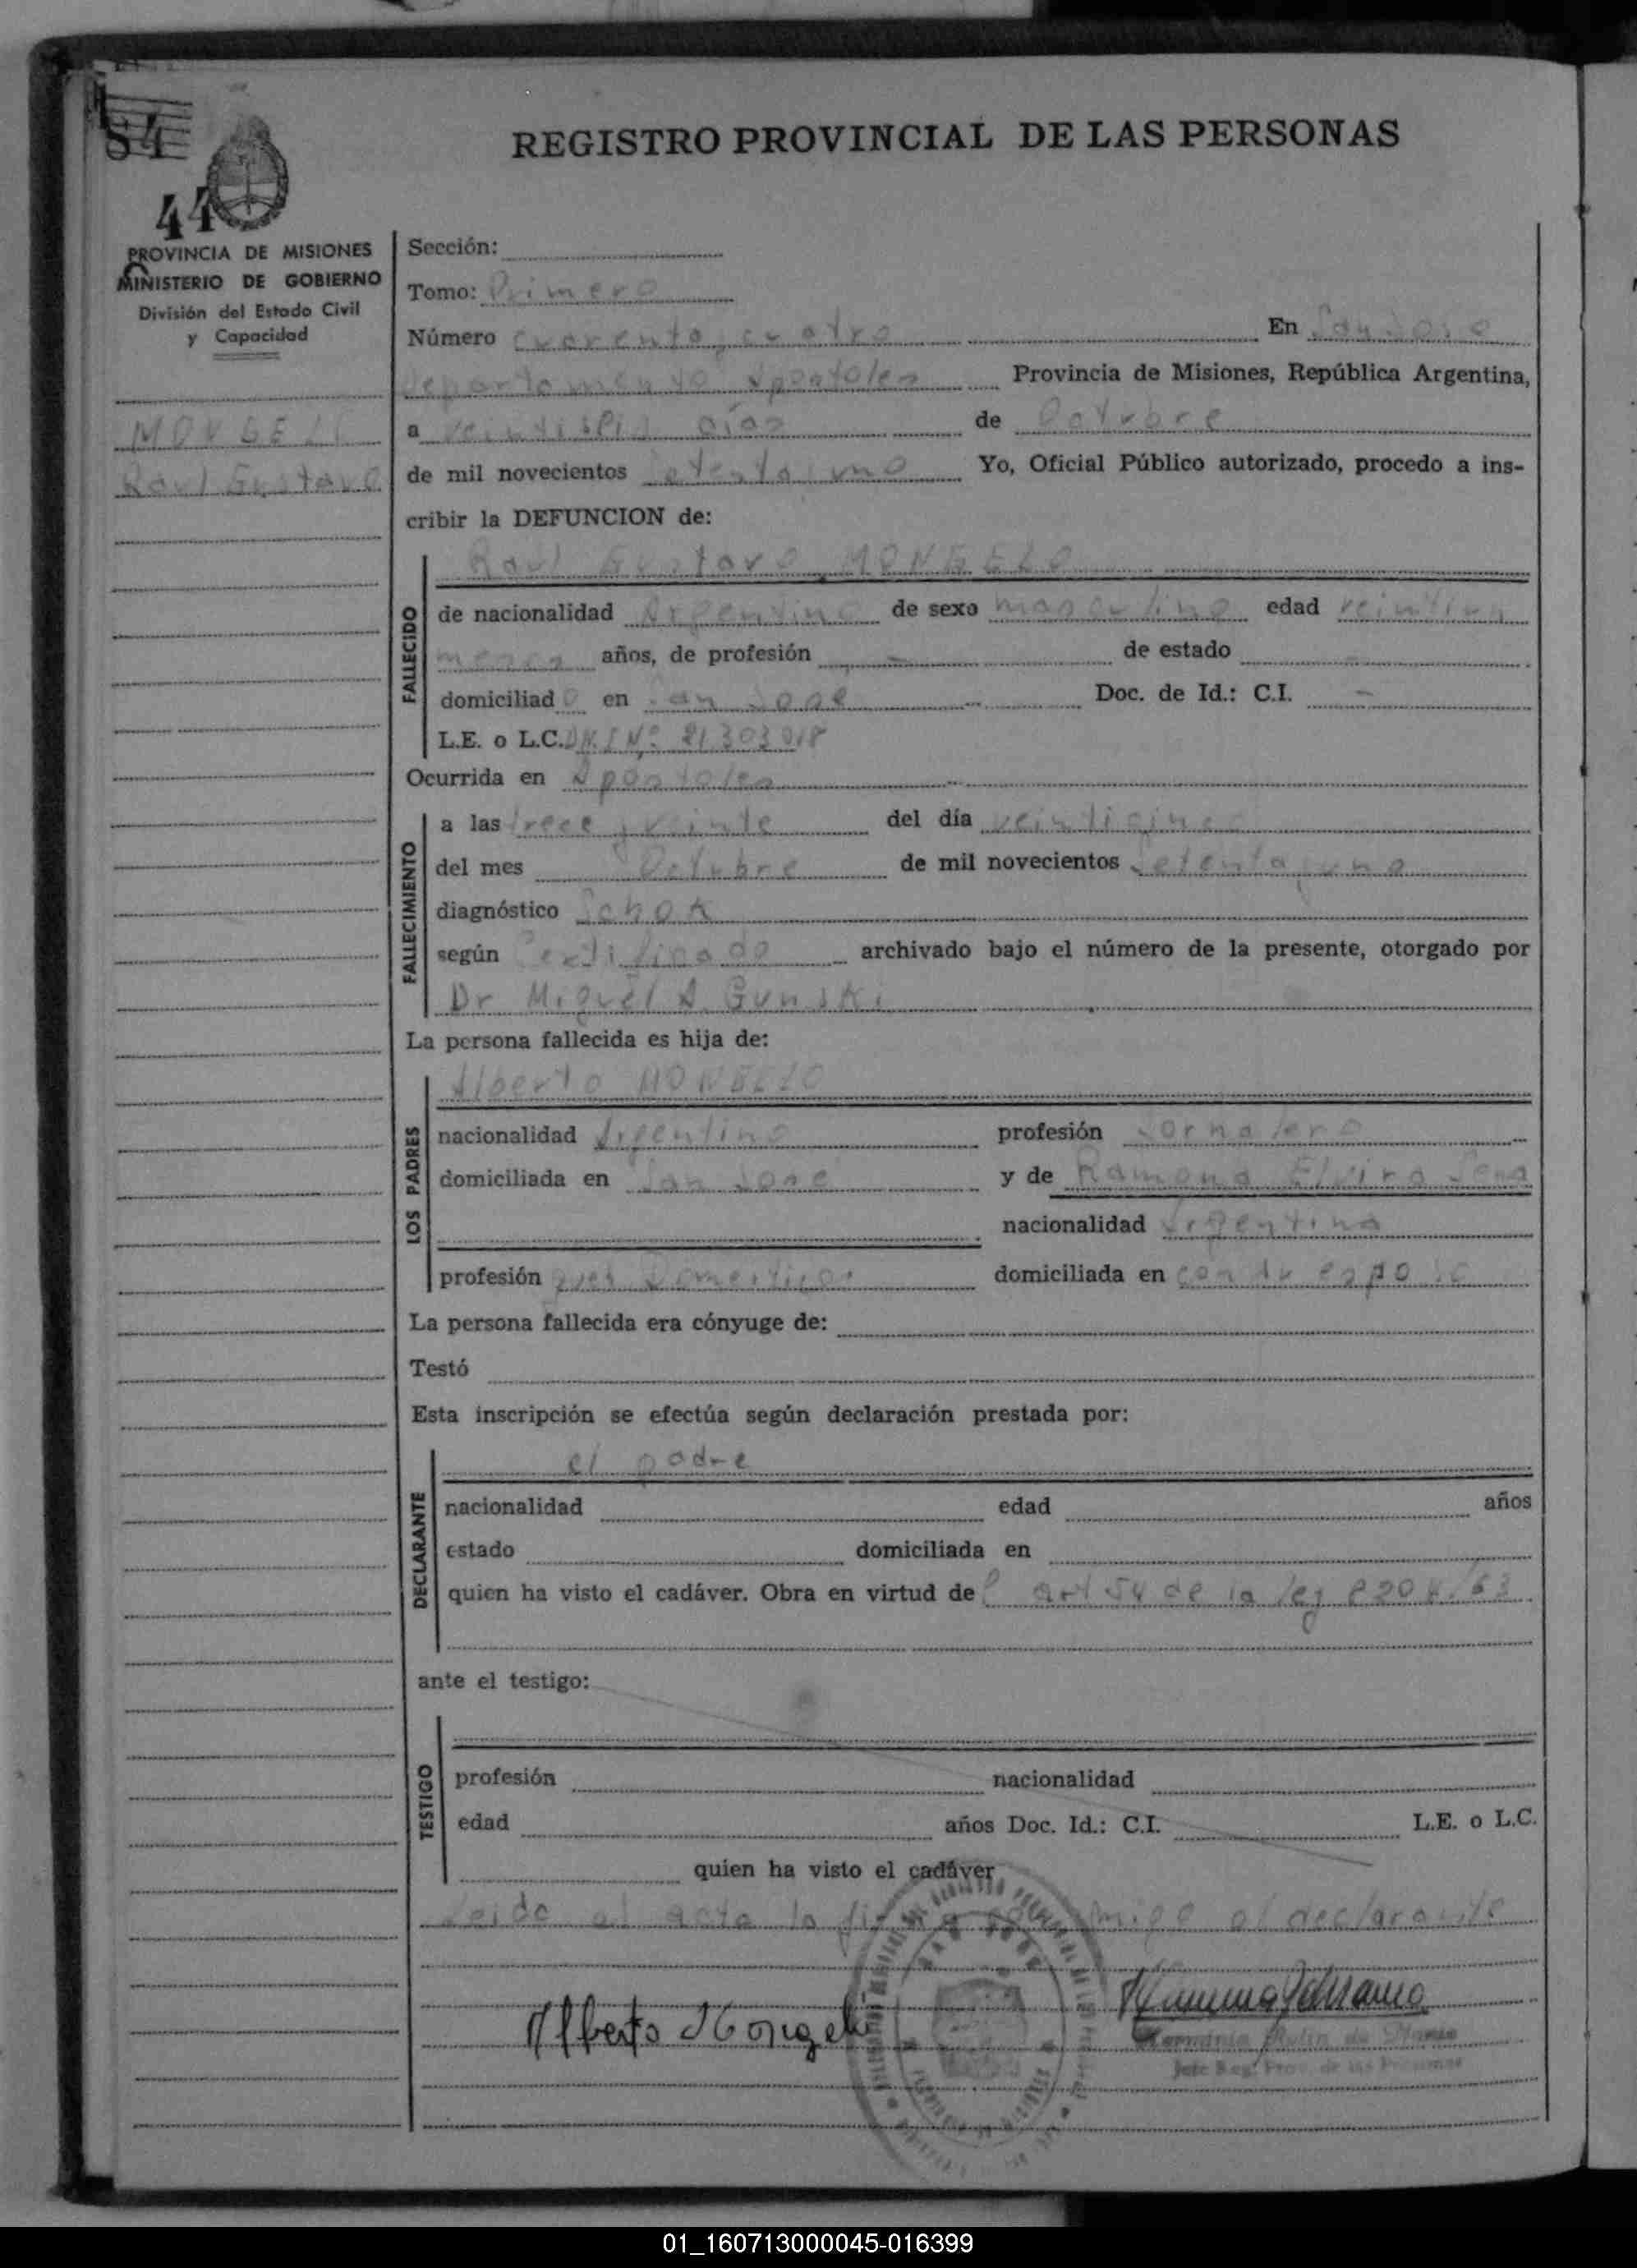 84
REGISTRO PROVINCIAL DE LAS PERSONAS
44
PROVINCIA DE MISIONES
MINISTERIO DE GOBIERNO
División del Estado Civil
y Capacidad
Raul Gustavo
Sección:
Tomo: Primero
Número cuarenta y cuatro En San Jose
departamento Apostoles Provincia de Misiones, República Argentina,
a veintiseis dias de Octubre
de mil novecientos setenta y uno Yo, Oficial Público autorizado, procedo a ins-
cribir la DEFUNCION de:
Raul Gustavo MONGELO
FALLECIDO
de nacionalidad Argentino de sexo masculino edad
meses años, de profesión - de estado
domiciliado en San Jose Doc. de Id.: C.I. -
L.E. o L.C. Nº
Ocurrida en Apostoles
FALLECIMIENTO
a las trece y veinte del día veinticinco
del mes Octubre de mil novecientos setenta y uno
diagnóstico Schok
según Certificado archivado bajo el número de la presente, otorgado por
Dr Miguel A. Gunski
La persona fallecida es hija de:
LOS PADRES
Alberto MONGELO
nacionalidad Argentino profesión Jornalero
domiciliada en San Jose y de Ramona Elvira
nacionalidad Argentina
profesión domiciliada en con su esposo
La persona fallecida era cónyuge de:
Testó
Esta inscripción se efectúa según declaración prestada por:
DECLARANTE
el padre
nacionalidad edad años
estado domiciliada en
quien ha visto el cadáver. Obra en virtud de art 54 de la ley
ante el testigo:
TESTIGO
profesión nacionalidad
edad años Doc. Id.: C.I. L.E. o L.C.
quien ha visto el cadáver
Leida el acta la firma conmigo el declarante
Alberto Mongelo
01_160713000045-016399